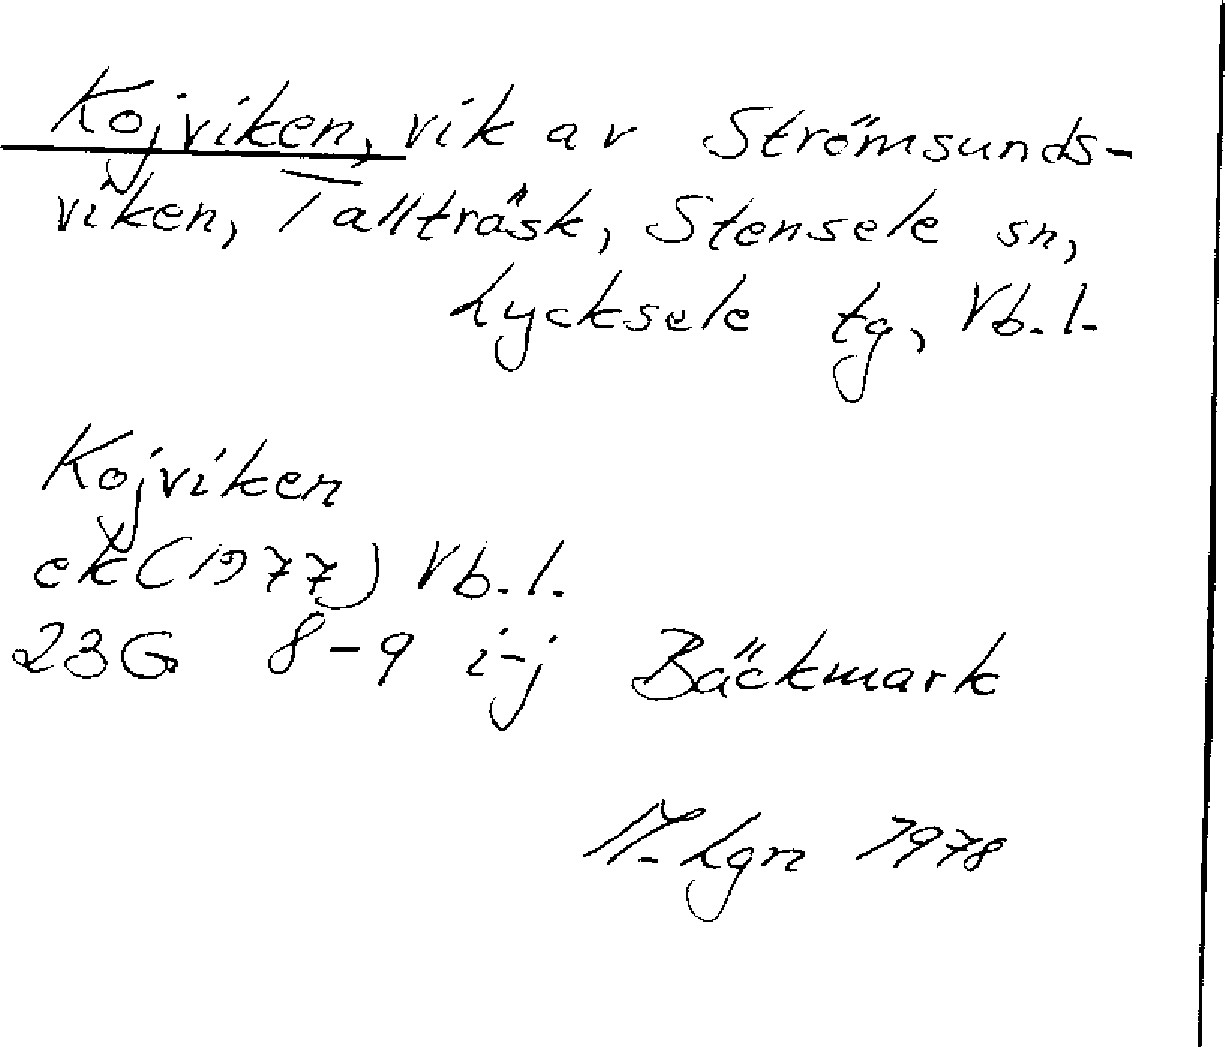 Kojviken, vik av Strömsunds-
viken, Tallträsk, Stensele sn,
Lycksele tg, Vb. l.
Kojviken
ek (1977) Vb. l.
23G 8-9 i-j Bäckmark
M. Lgn 1978